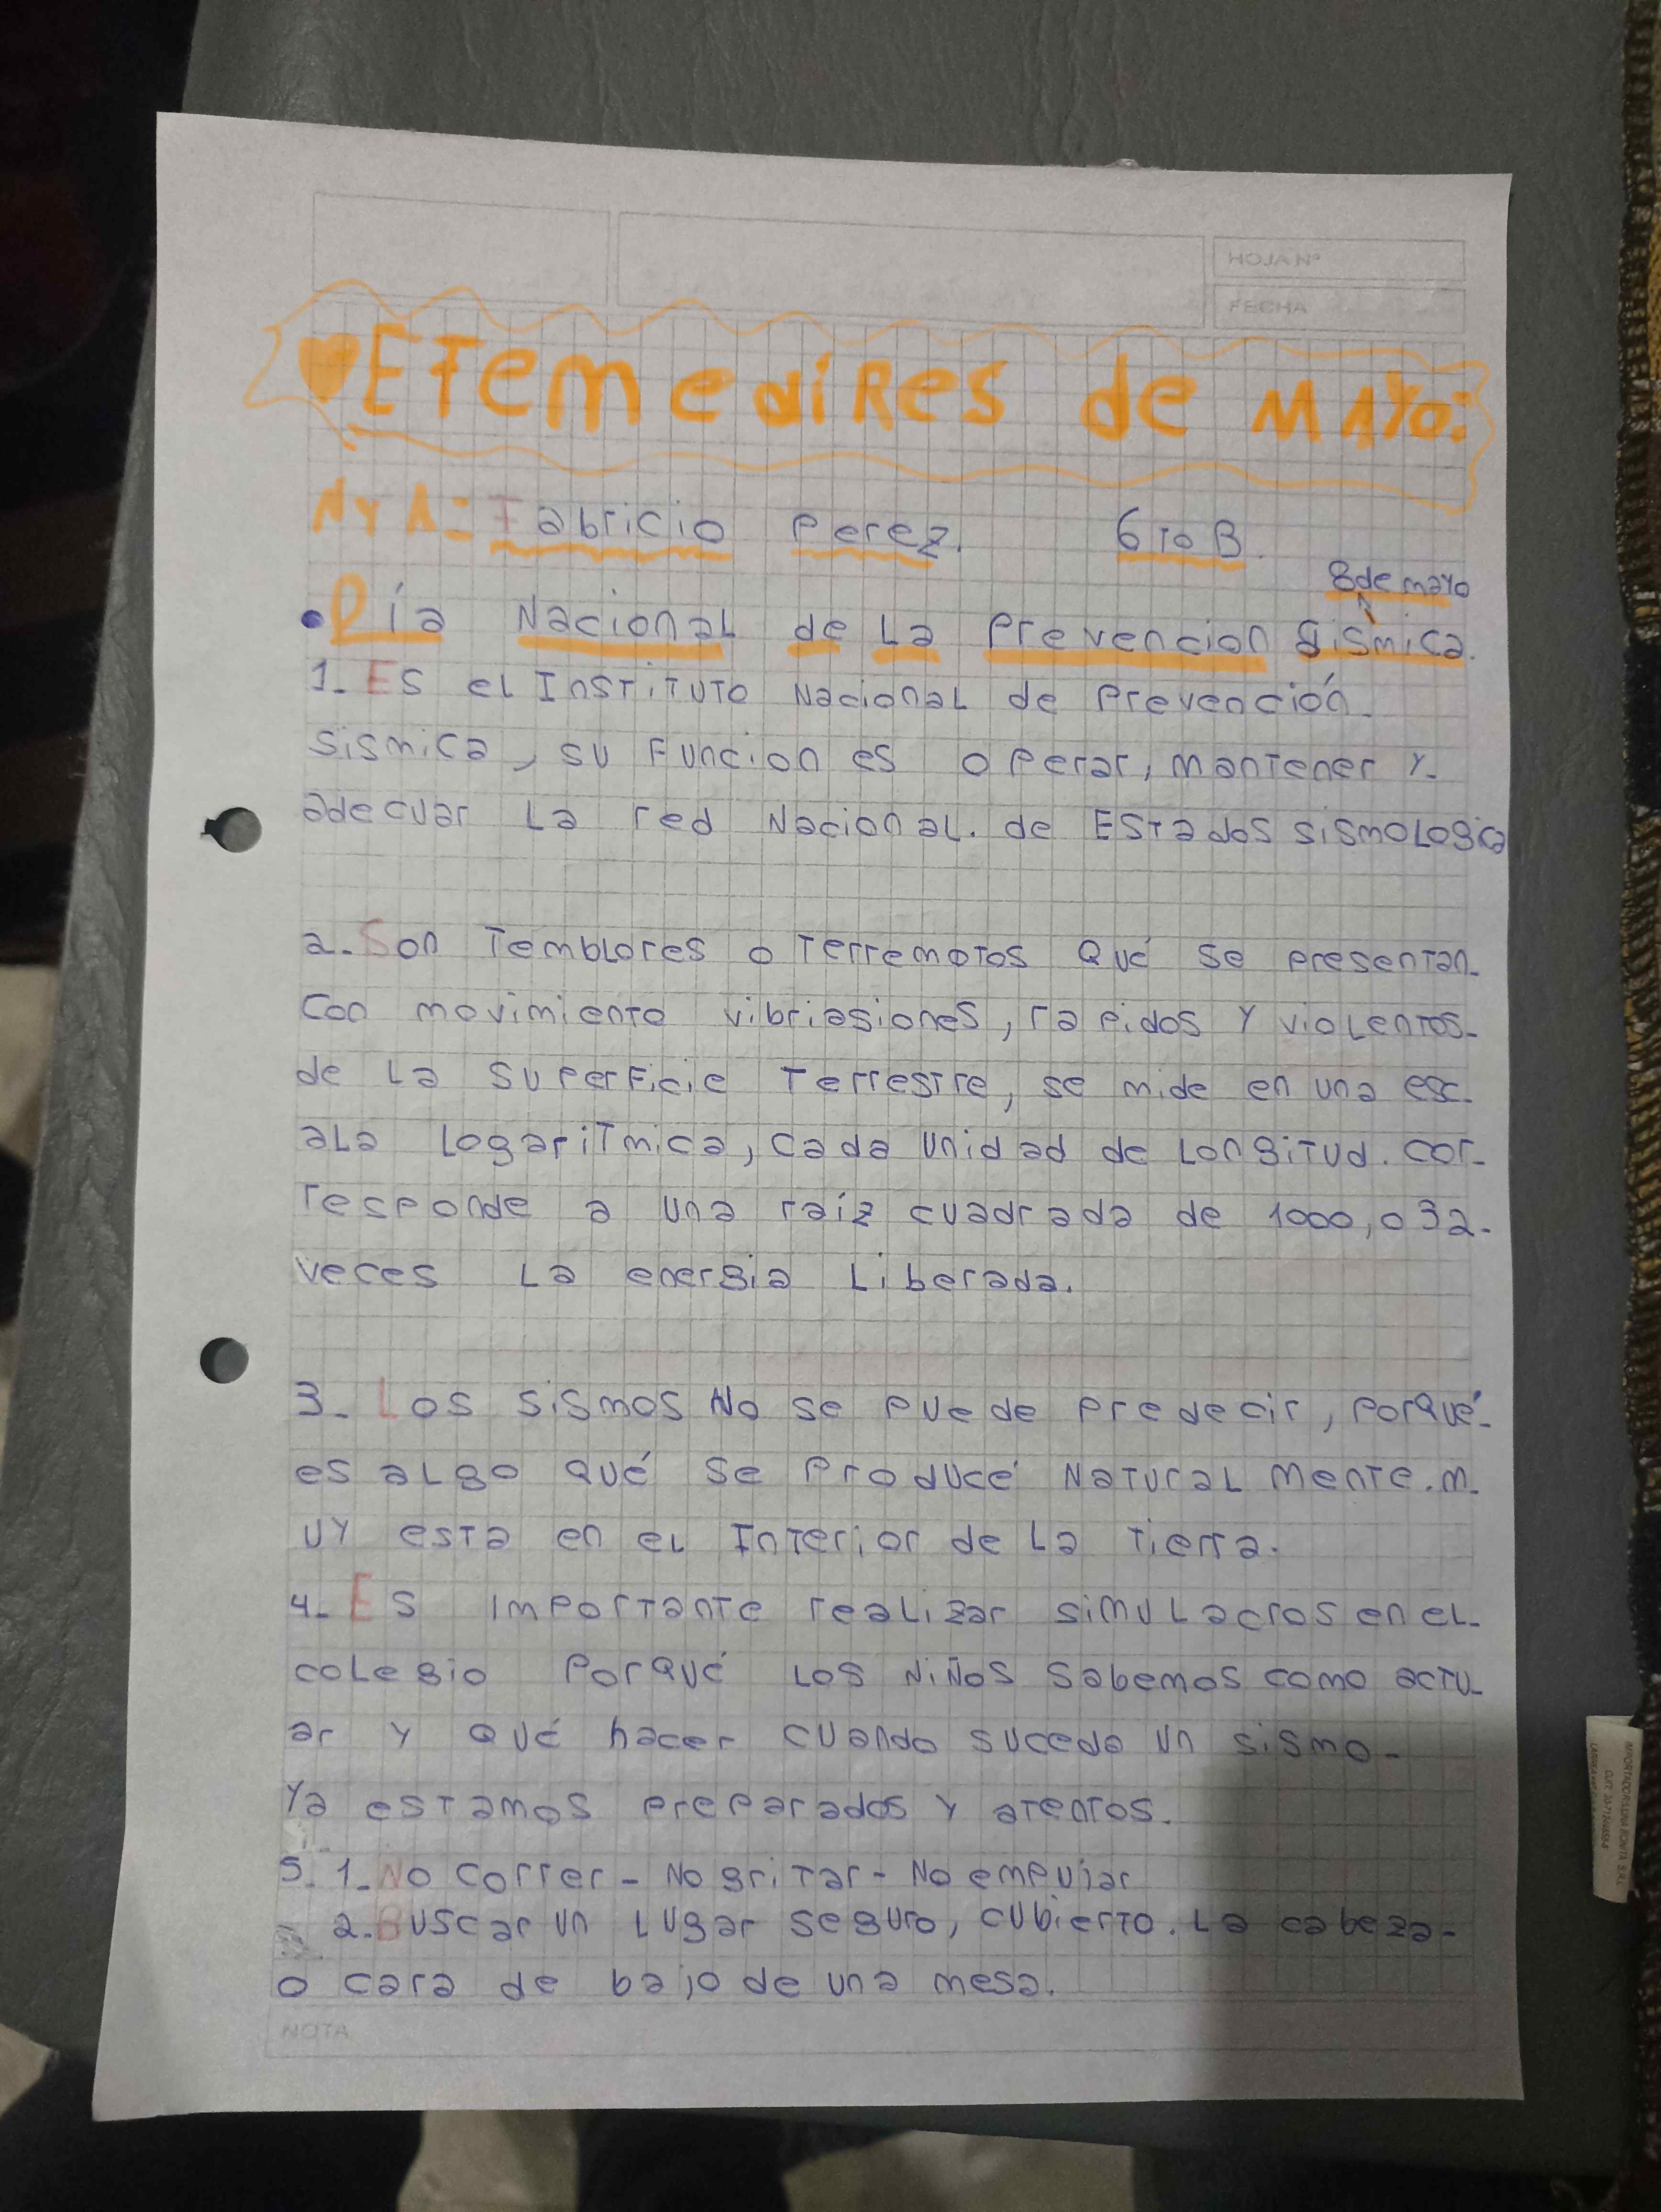 HOJA Nº
FECHA
EFemediRes de MAYO:
NYA: Fabricio Perez. 6To B.
8 de mayo
• Día Nacional de La Prevencion Sismica.
1. Es el InsTiTuTo Nacional de Prevención-
sismica, su Funcion es operar, manTener Y-
adecuar La red Nacional. de ESTados sismologia
2. Son Temblores o Terremotos Qué se presentan-
con movimiento vibriasiones, rapidos Y violentos-
de La superficie Terrestre, se mide en una esc-
ala Logaritmica, cada unidad de Longitud. cor-
responde a una raíz cuadrada de 1000, o 32-
veces La energia Liberada.
3. Los sismos No se puede predecir, porqué-
es algo qué se producé Natural mente. m-
uy esta en el Interior de La Tierra.
4. Es importante realizar simulacros en el-
colegio Porqué Los Niños sabemos como actu-
ar y Qué hacer cuando sucede un sismo-
Ya estamos preparados y atentos.
5. 1. No correr - No gritar - No empujar
2. Buscar un Lugar seguro, cubierto. La cabeza-
o cara de bajo de una mesa.
NOTA